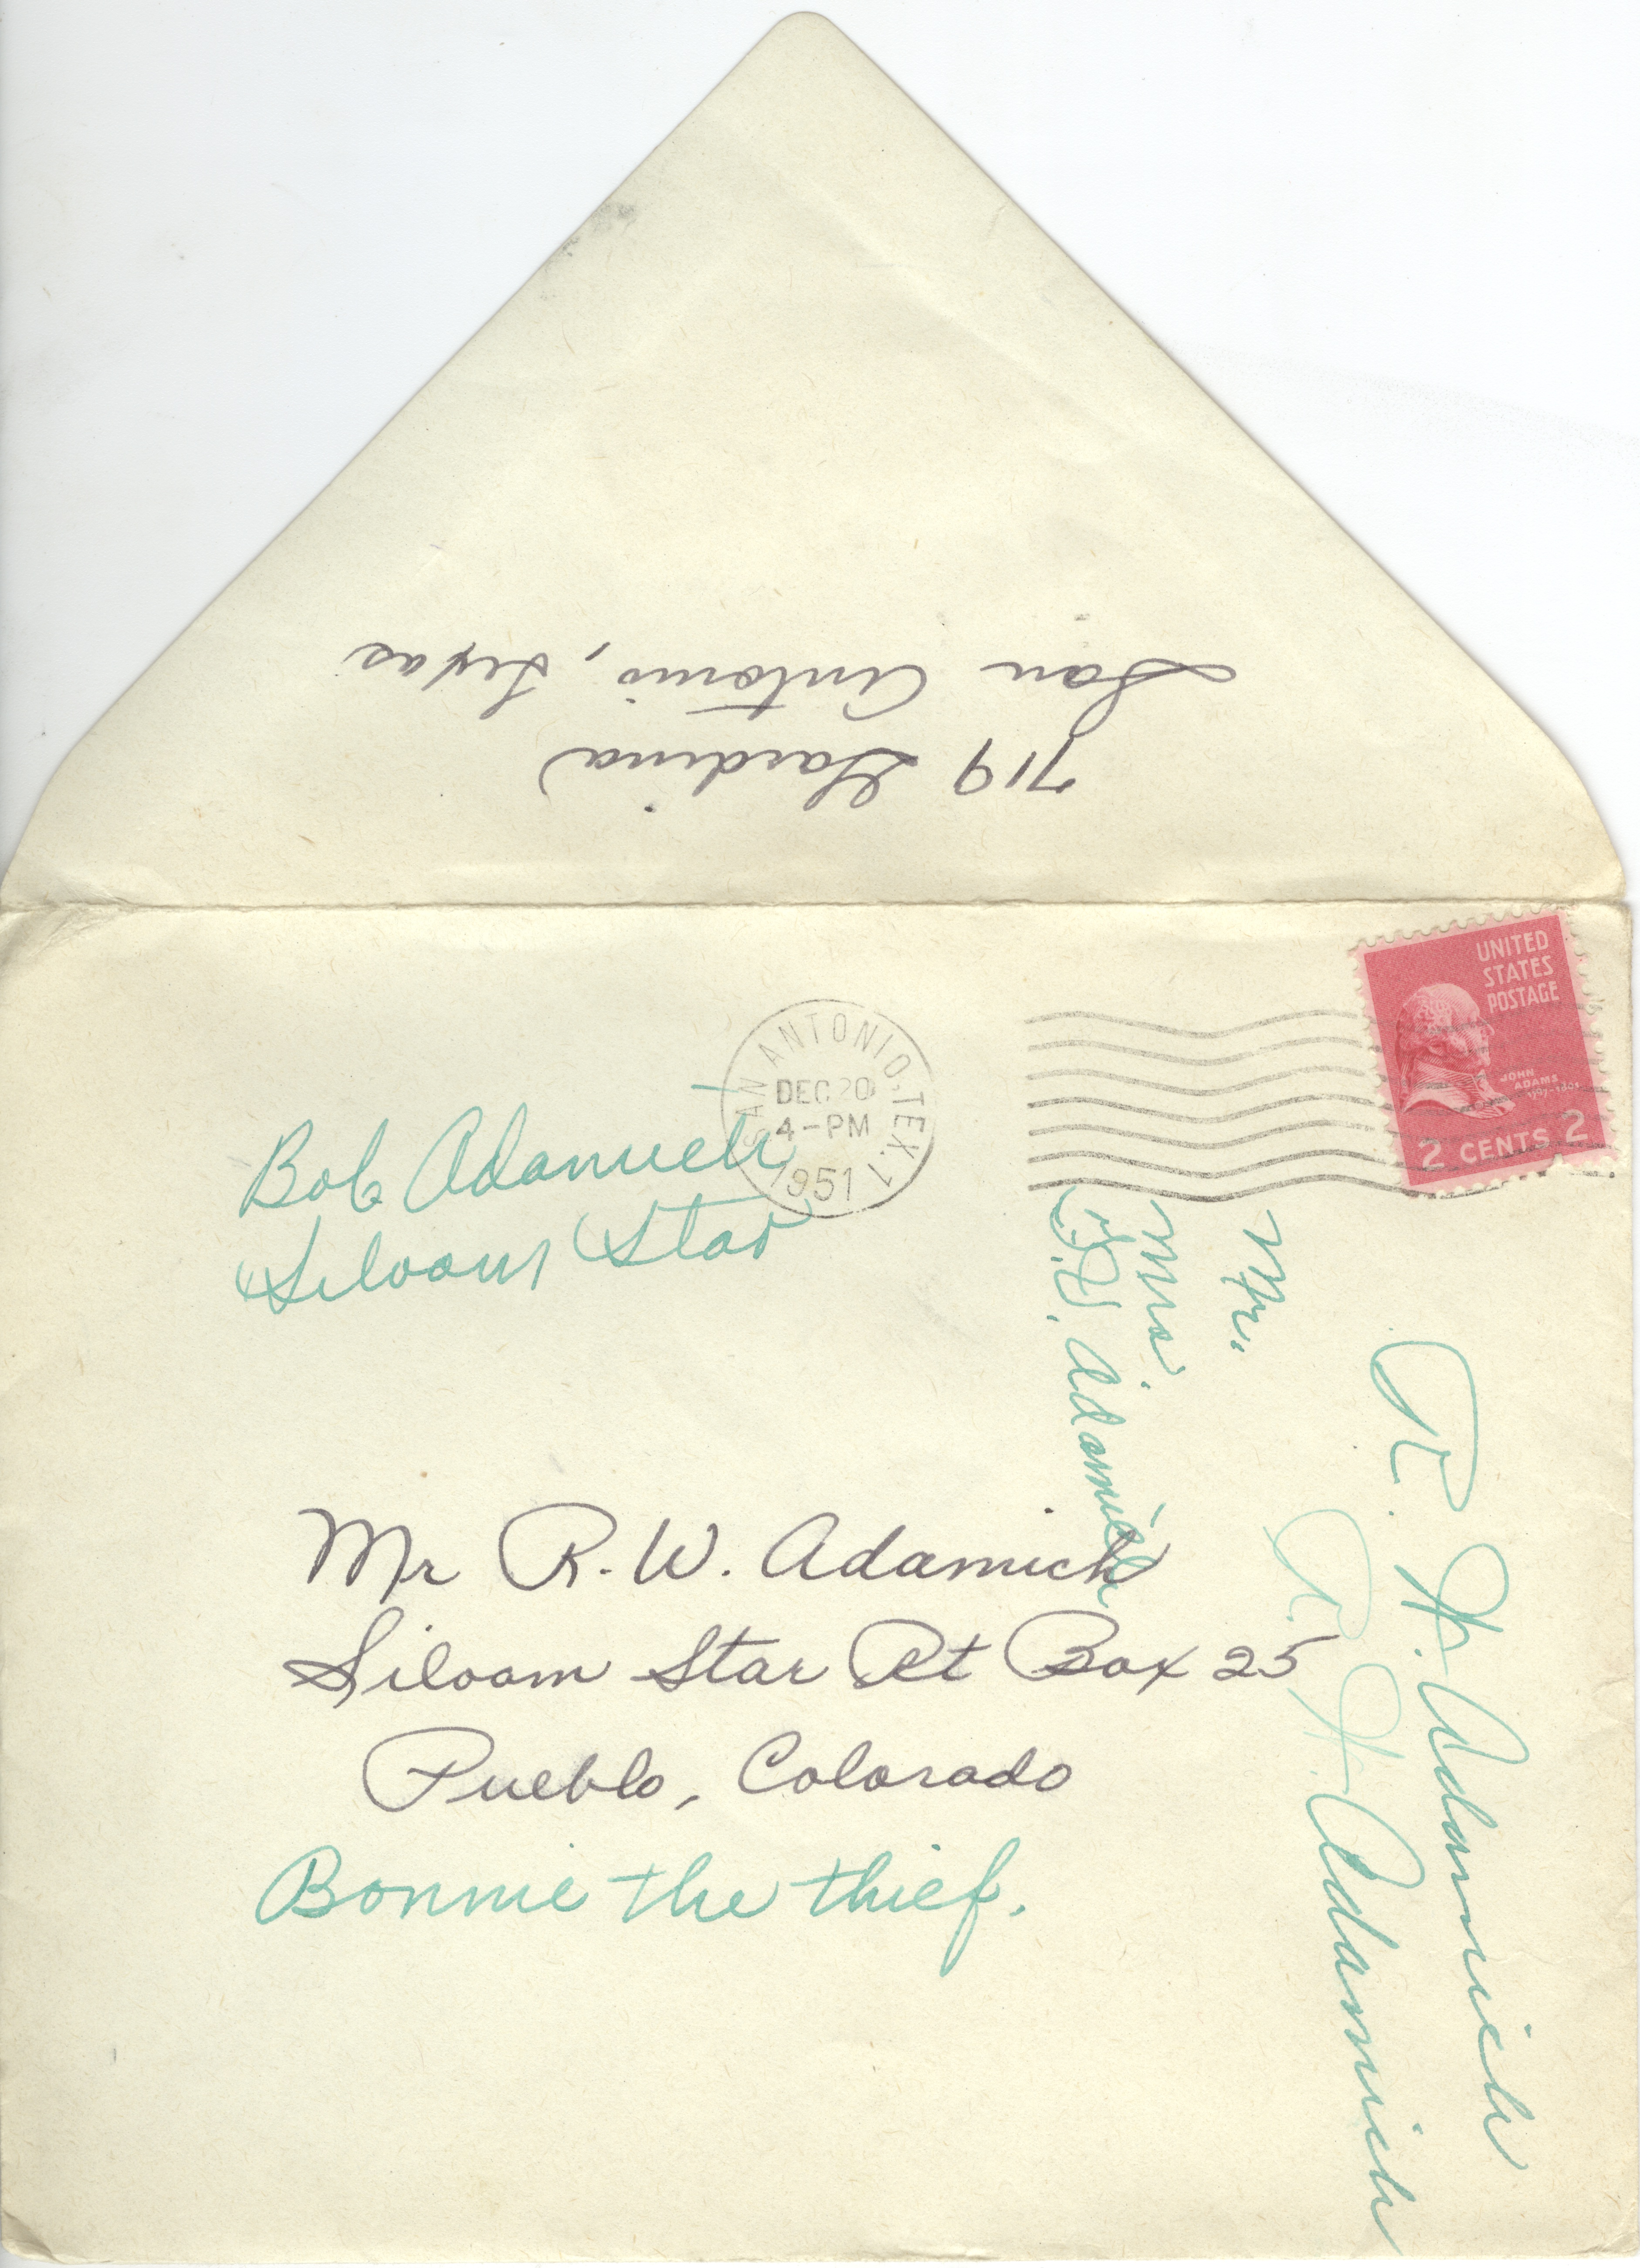 719 Gardina
San Antonio, Texas
UNITED
STATES
POSTAGE
JOHN
ADAMS
1797-1801
2 CENTS 2
SAN ANTONIO, TEX. 1
DEC 20
4-PM
1951
Bob Adamich
Siloam Star
Mr R. W. Adamich
Siloam Star Rt Box 25
Pueblo, Colorado
Bonnie the thief.
Mr.
Mrs.
Adamich
R. W. Adamich
R. W. Adamich